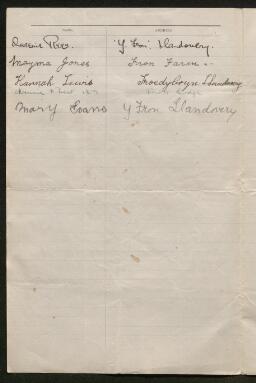 NAME. ADDRESS.
Rees. 'Y Fron'. Llandovery.
Mayma Jones Fron Farm
Hannah Lewis Troedyrhiw Llandovery
Mary Evans Y Fron Llandovery